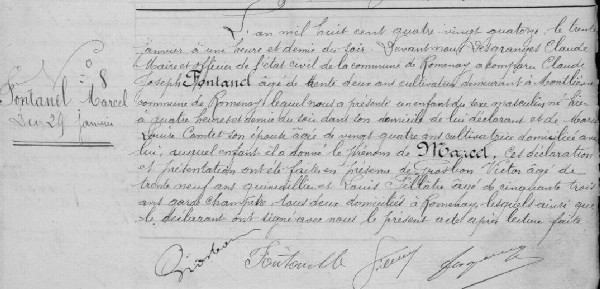 N° 8
Fontanel Marcel
Du 29 janvier
L'an mil huit cent quatre vingt quatorze, le trente
janvier à une heure et demie du soir. Devant nous Desgranges Claude
Maire et officier de l'état civil de la commune de Romenay a comparu Claude
Joseph Fontanel âgé de trente deux ans cultivateur demeurant à
commune de Romenay, lequel nous a présenté un enfant du sexe masculin né hier
à quatre heures et demie du soir dans son domicile de lui déclarant et de Marie
Louise Comtet son épouse âgée de vingt quatre ans cultivatrice domiciliée avec
lui, auquel enfant il a donné le prénom de Marcel. Ces déclaration
et présentation ont été faites en présence de Victor âgé de
trente neuf ans et Louis âgé de cinquante trois
ans garde champêtre tous deux domiciliés à Romenay, lesquels ainsi que
le déclarant ont signé avec nous le présent acte après lecture faite